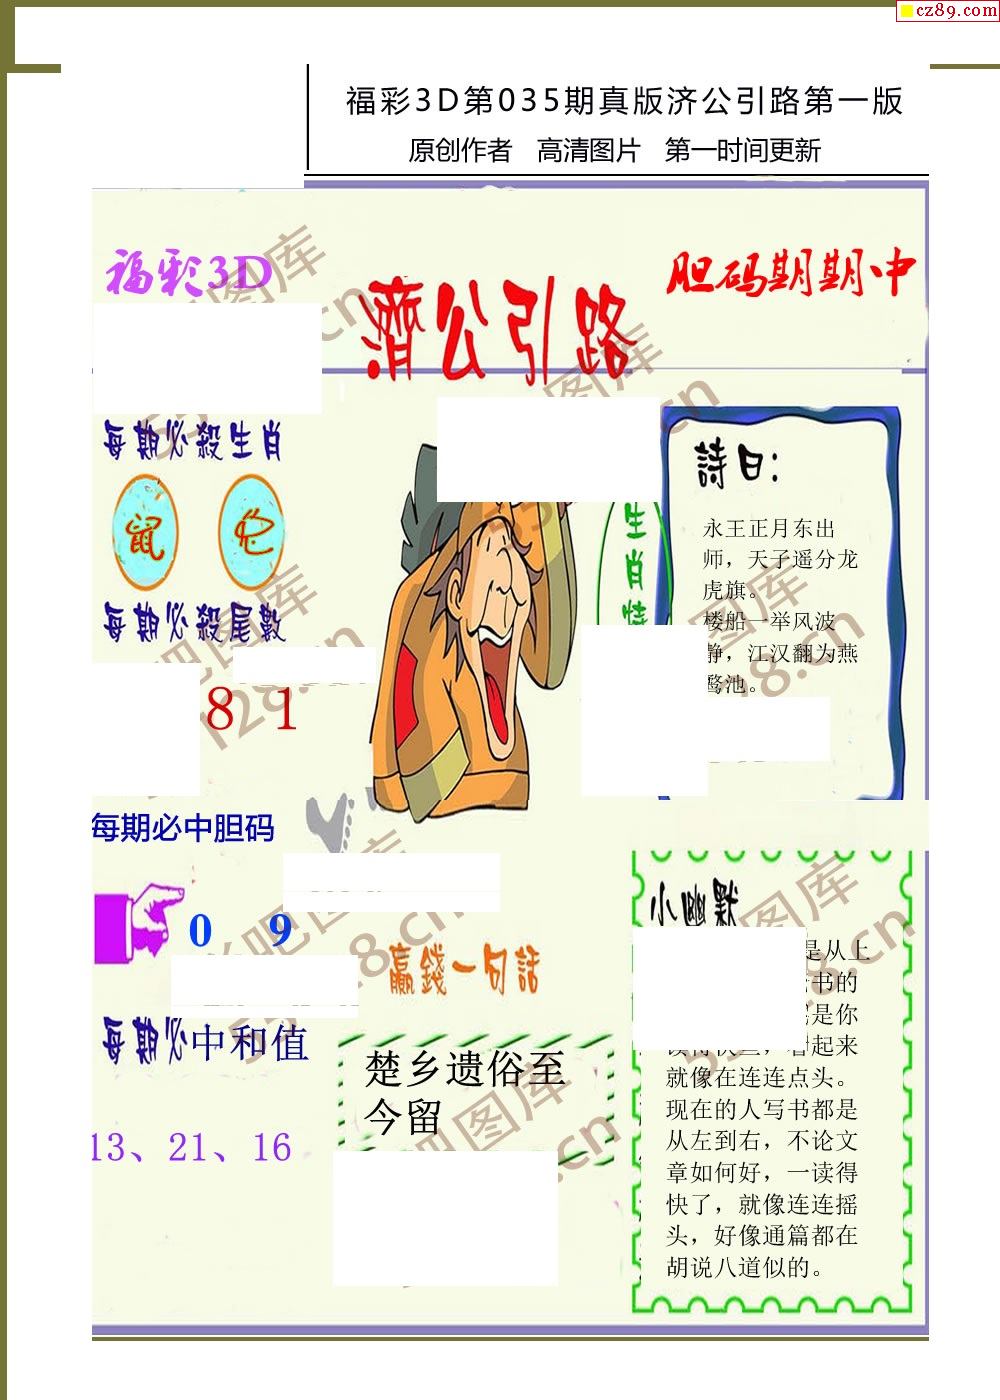 cz89.com
福彩3D第035期真版济公引路第一版
原创作者 高清图片 第一时间更新
福彩3D
濟公引路
胆码期期中
每期必殺生肖
鼠 蛇
每期必殺尾數
8 1
每期必中胆码
0 9
每期必中和值
13、21、16
生肖
詩曰：
永王正月东出
师，天子遥分龙
虎旗。
楼船一举风波
静，江汉翻为燕
鹜池。
贏錢一句話
楚乡遗俗至
今留
小幽默
是从上
书的
是你
看起来
就像在连连点头。
现在的人写书都是
从左到右，不论文
章如何好，一读得
快了，就像连连摇
头，好像通篇都在
胡说八道似的。